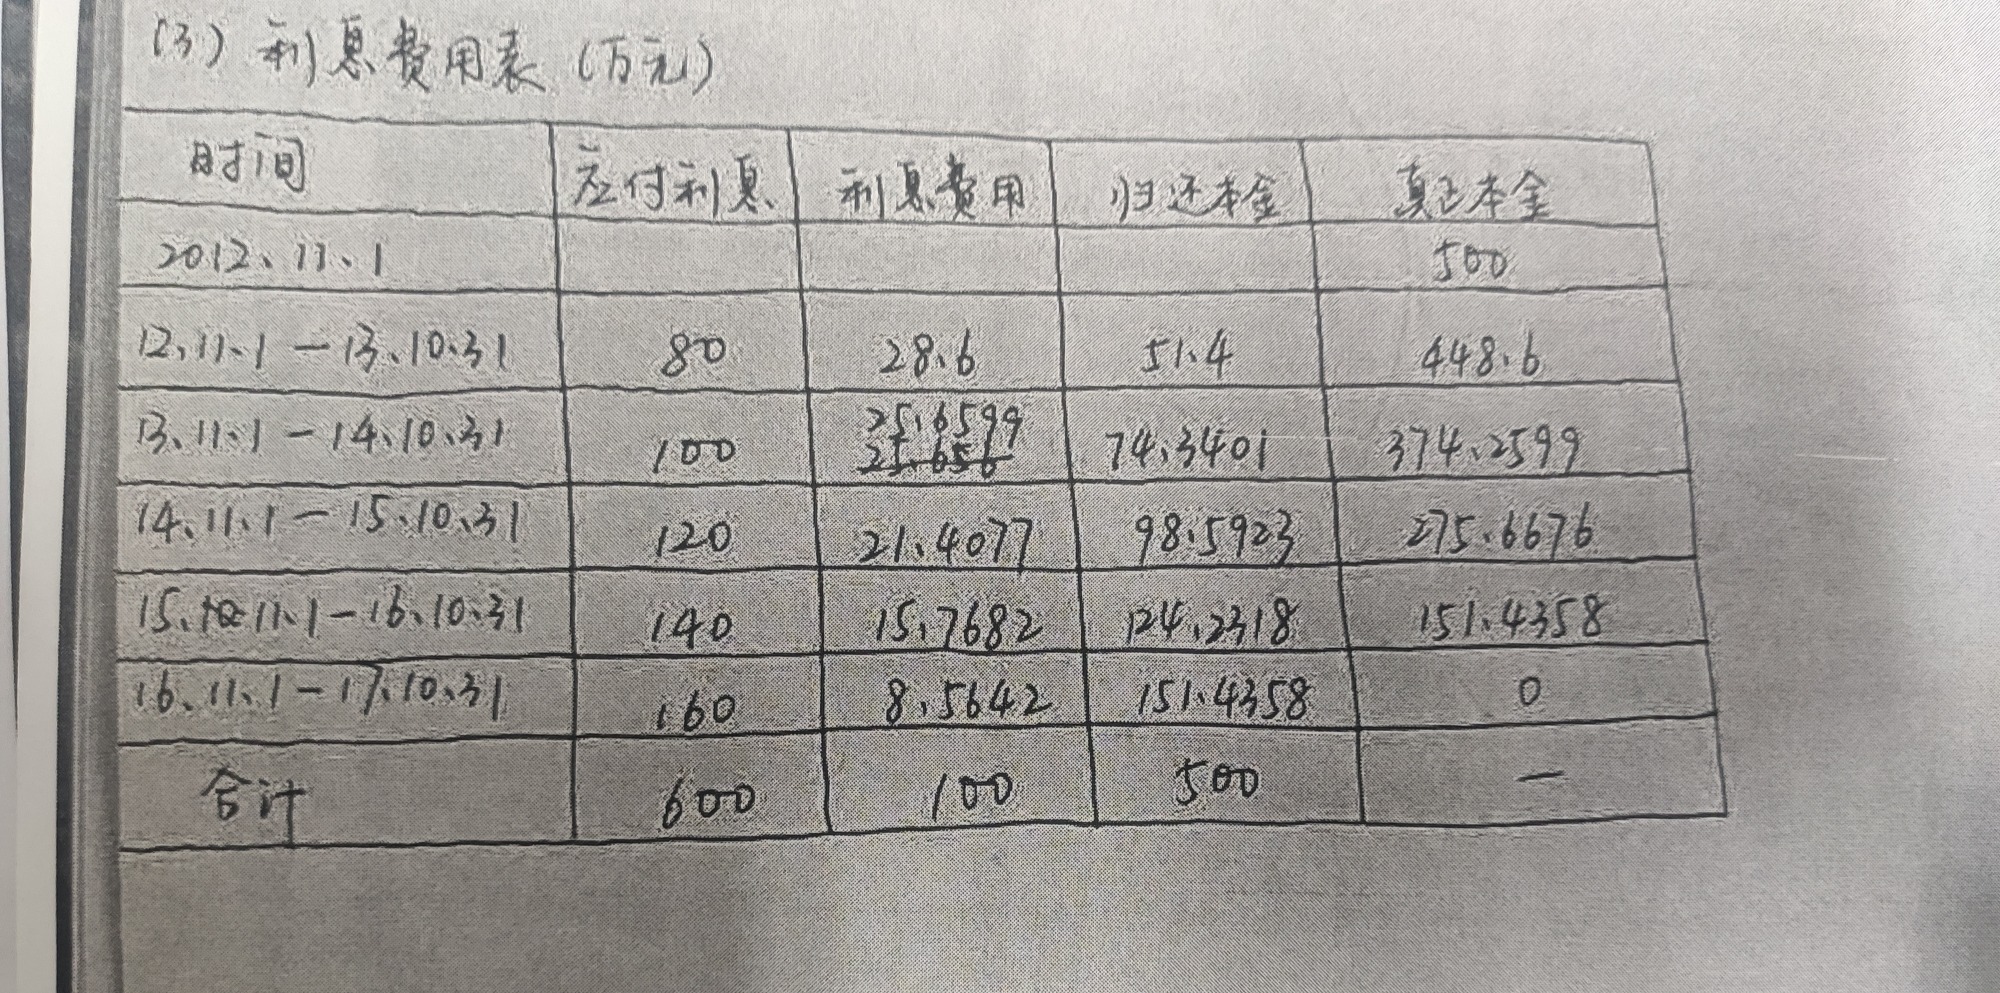 (3) 利息费用表 (万元)
时间 应付利息 利息费用 归还本金 真正本金
2012、11、1 500
12、11、1 — 13、10、31 80 28.6 51.4 448.6
13、11、1 — 14、10、31 100 25.6599 74.3401 374.2599
14、11、1 — 15、10、31 120 21.4077 98.5923 275.6676
15、11、1 — 16、10、31 140 15.7682 124.2318 151.4358
16、11、1 — 17、10、31 160 8.5642 151.4358 0
合计 600 100 500 —